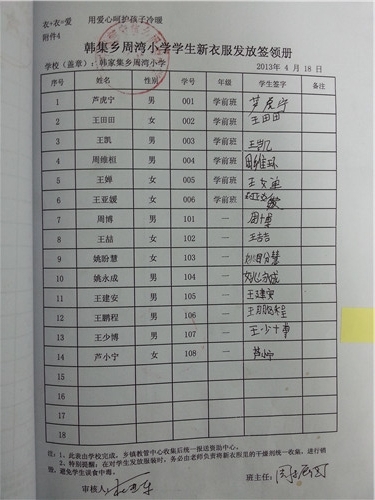 衣+衣=爱 用爱心呵护孩子冷暖
附件4
韩集乡周湾小学学生新衣服发放签领册
学校（盖章）：韩家集乡周湾小学 2013年 4 月 18 日
序号 姓名 性别 学号 年级 学生签字 备注
1 芦虎宁 男 001 学前班 芦虎宁
2 王田田 女 002 学前班 王田田
3 王凯 男 003 学前班 王凯
4 周维桓 男 004 学前班 周维环
5 王婵 女 005 学前班
6 王亚媛 女 006 学前班
7 周博 男 101 一 周博
8 王喆 女 102 一 王吉吉
9 姚盼慧 女 103 一 姚盼慧
10 姚永成 男 104 一 姚永成
11 王建安 男 105 一 王建安
12 王鹏程 男 106 一 王鹏程
13 王少博 男 107 一 王少博
14 芦小宁 女 108 一 芦小宁
15
16
17
18
注：1、此表由学校完成，乡镇教管中心收集后统一报送资助中心。
2、特别提醒：在对学生发放服装时，务必由老师负责将新衣服里的干燥剂统一收集，进行销
毁，避免学生误食中毒。
审核人： 班主任：